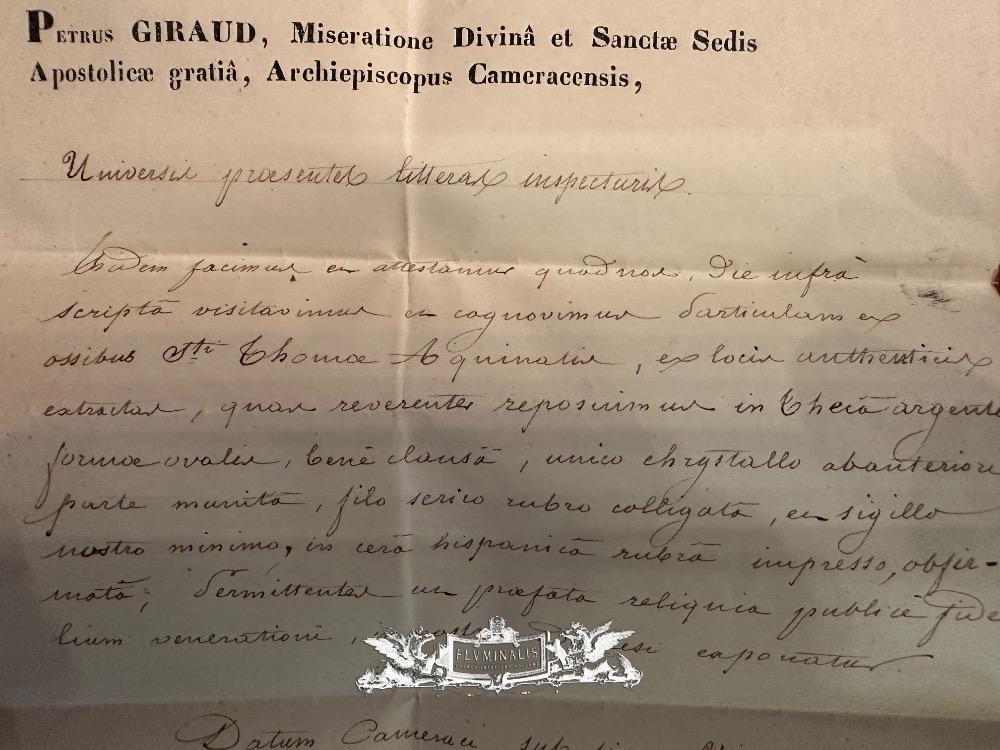 PETRUS GIRAUD, Miseratione Divinâ et Sanctæ Sedis
Apostolicæ gratiâ, Archiepiscopus Cameracensis,
Universis præsentes litteras inspecturis.
Fidem facimus et attestamur quod nos, die infrà
scriptâ visitavimus et cognovimus particulam ex
ossibus Sti Thomæ Aquinatis, ex locis authenticis
extractas, quas reverenter reposuimus in thecâ argente
formæ ovalis, benè clausâ, unico chrystallo ab anteriore
parte munitâ, filo serico rubro colligatâ, et sigillo
nostro minimo, in cerâ hispanicâ rubrâ impresso, obfir-
matâ; permittentes ut præfata reliquia publicè fide
lium venerationi, exponatur.
FLVMINALIS
Datum Cameraci sub